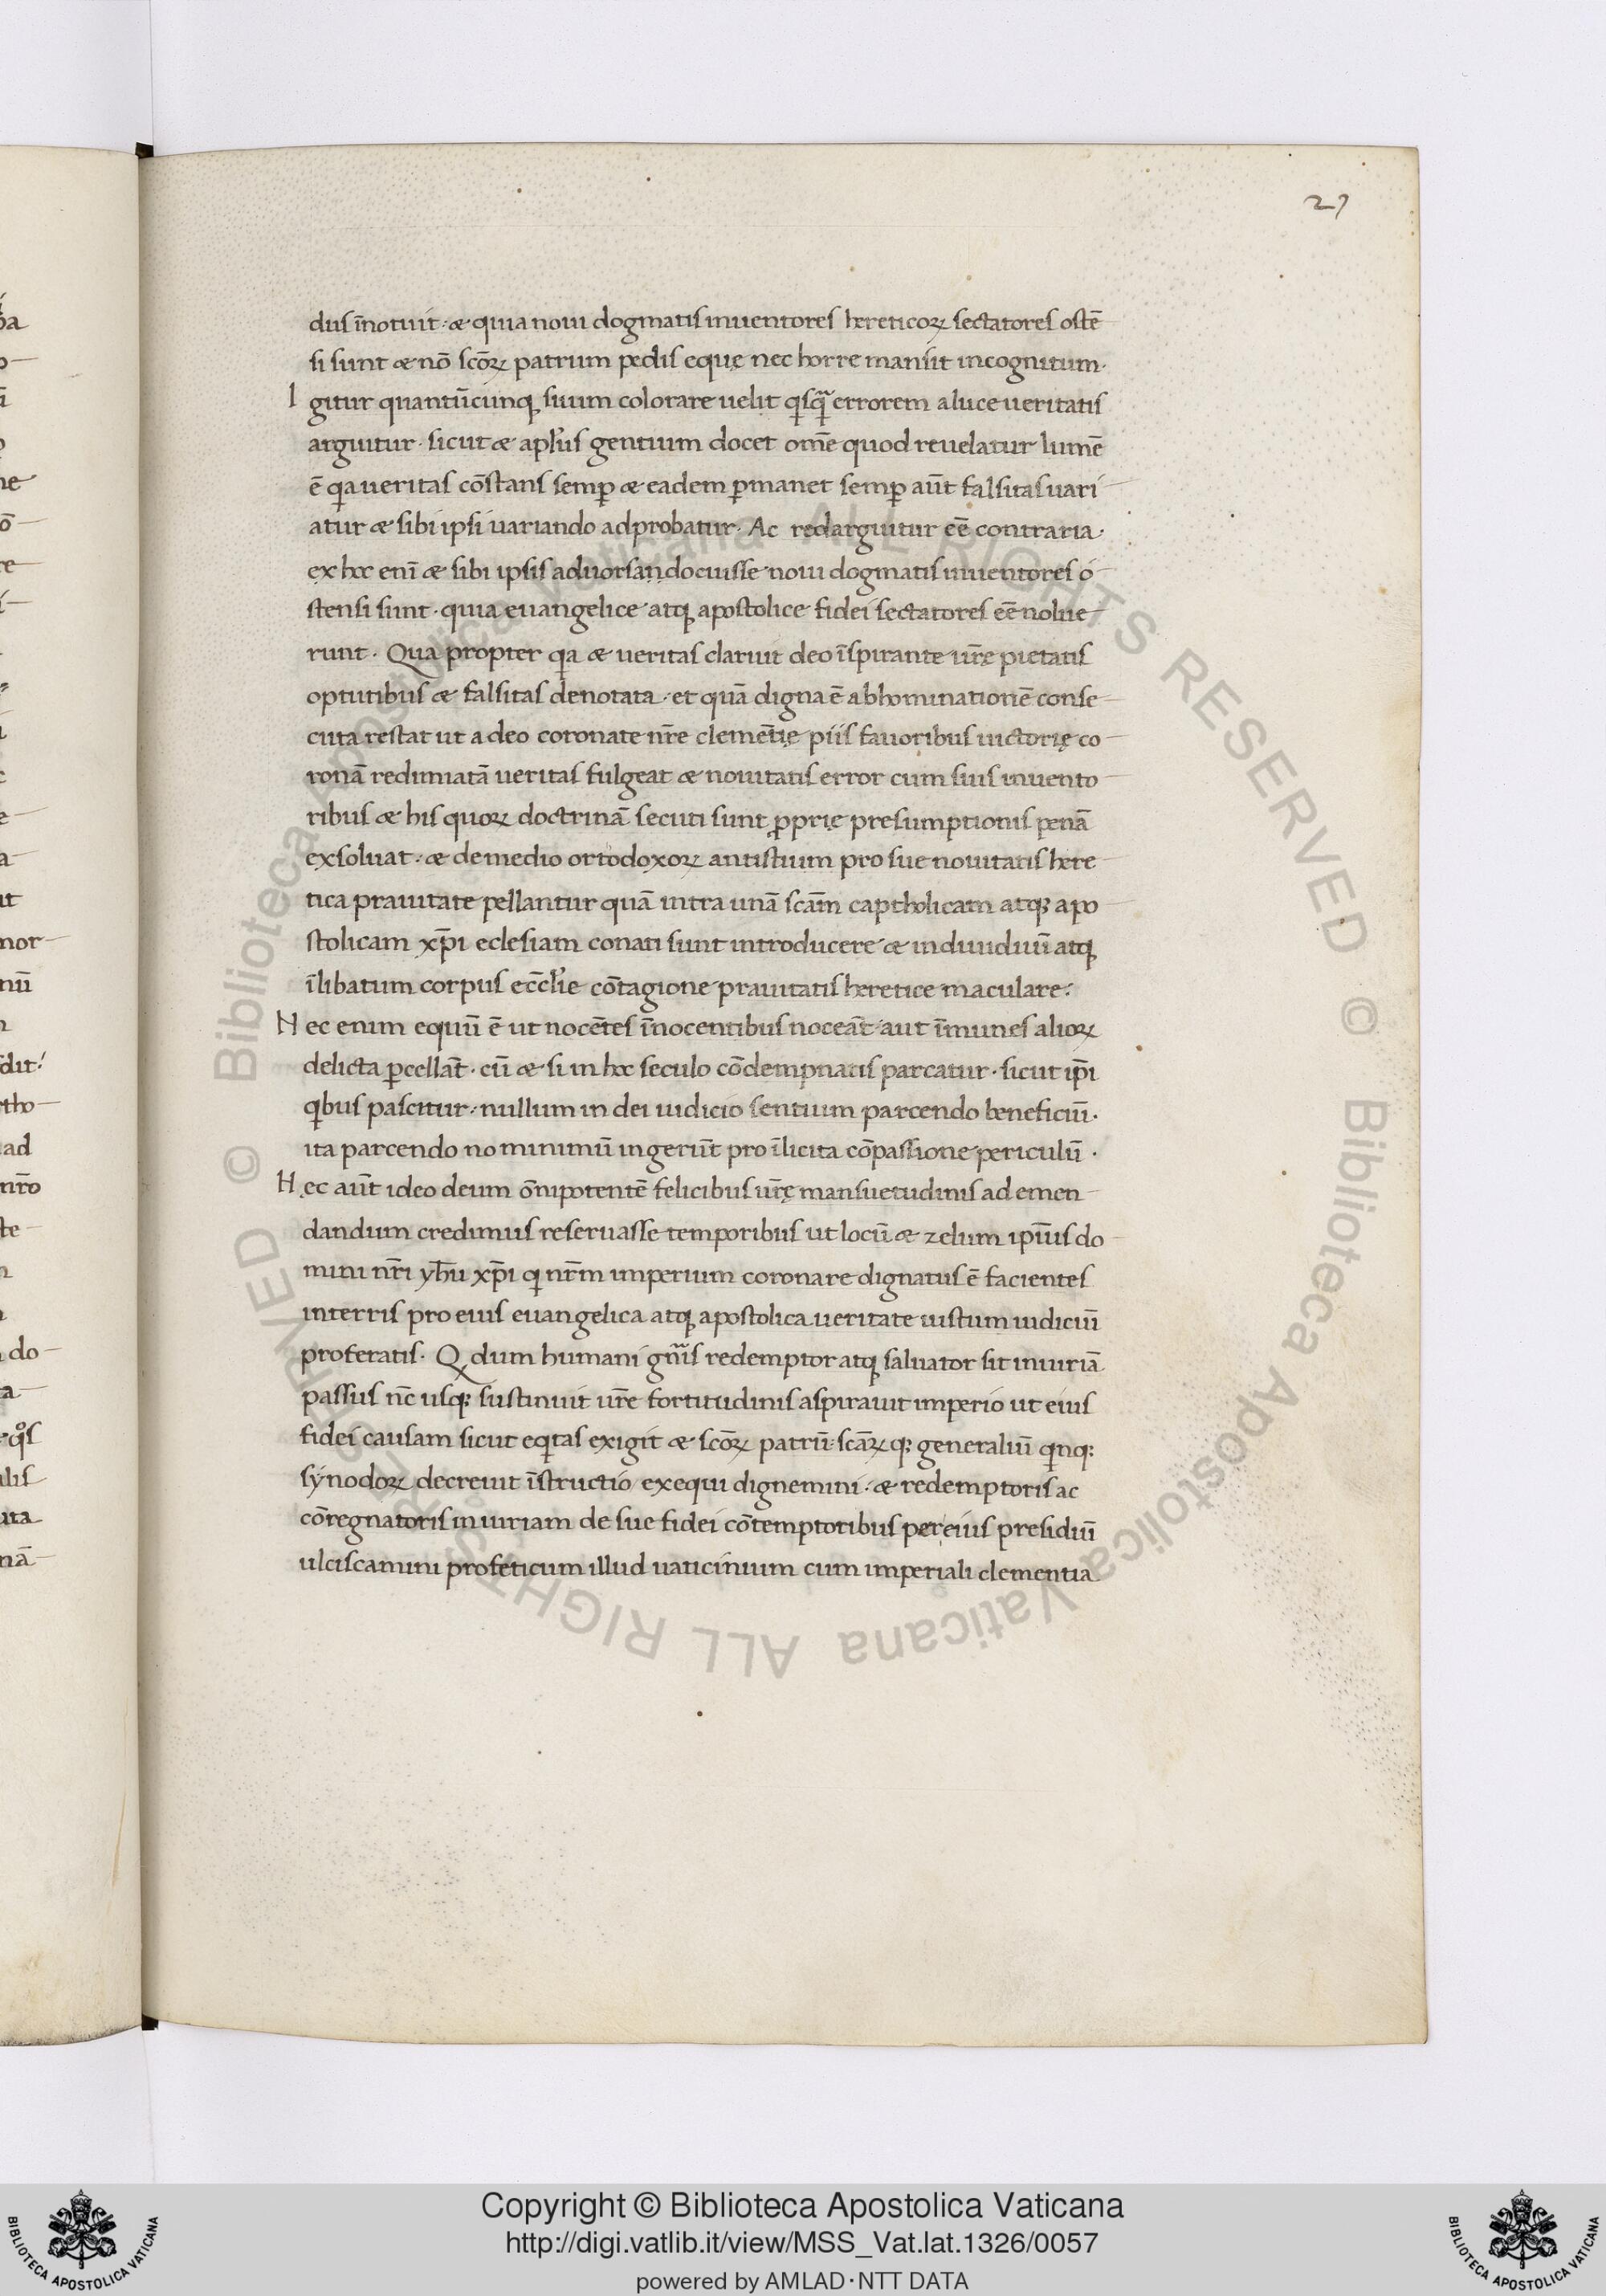 27
dus īnotuit · & quia noui dogmatis inuentores hereticoꝝ sectatores ostē
si sunt & nō scōꝝ patrum pedis eque̜ nec horre mansit incognitum·
I gitur quantūcunqꝫ suum colorare uelit qͥsqͣ̄ errorem a luce ueritatis
arguitur · sicut & apl̄us gentium docet omē quod reuelatur lumē
ē qͥa ueritas cōstans semꝑ & eadem ꝑmanet semꝑ aūt falsitas uari
atur & sibi ipsi uariando adprobatur· Ac redarguitur eē contraria·
ex hoc enī & sibi ipsis aduorsan docuisse noui dogmatis inuentores o
stensi sunt · quia euangelice atqꝫ apostolice fidei sectatores eē nolue
runt · Qua propter qͥa & ueritas claruit deo īspirante ur̄e̜ pietatis
optutibus & falsitas denotata · et quā digna ē abhominationē conse
cuta restat ut a deo coronate nr̄e clemētie̜ piis fauoribus uictorie̜ co
ronā redimiatā ueritas fulgeat & nouitatis error cum suis inuento
ribus & his quoꝝ doctrinā secuti sunt ꝓprie̜ presumptionis penā
exsoluat · & de medio ortodoxoꝝ antistium pro sue nouitatis here
tica prauitate pellantur quā intra unā scām captholicam atqꝫ apo
stolicam xp̄i eclesiam conati sunt introducere & indiuiduū atqꝫ
īlibatum corpus eccl̄ie cōtagione prauitatis heretice maculare·
N ec enim equū ē ut nocētes īnocentibus noceāt aut īmunes alioꝝ
delicta ꝑcellāt · cū & si in hoc seculo cōdempnatis parcatur · sicut ip̄i
qͥbus pascitur · nullum in dei iudicio sentium parcendo beneficiū·
ita parcendo no minimū ingerūt pro īlicita cōpassione periculū ·
H ec aūt ideo deum ōnipotentē felicibus ur̄e̜ mansuetudinis ad emen
dandum credimus reseruasse temporibus ut locū & zelum ipīus do
mini nr̄i yh̄u xp̄i qͥ nr̄m imperium coronare dignatus ē facientes
in terris pro eius euangelica atqꝫ apostolica ueritate iustum iudiciū
proferatis· Qꝫ dum humani gn̄is redemptor atqꝫ saluator sit iniuriā
passus nc̄ usqꝫ sustinuit ur̄e fortitudinis aspirauit imperio ut eius
fidei causam sicut eqͥtas exigit & scōꝝ patrū scāꝝqꝫ generaliū qͥnqꝫ
synodoꝝ decreuit īstructio exequi dignemini · & redemptoris ac
cōregnatoris iniuriam de sue fidei cōtemptoribus per eius presidiū
ulciscamini profeticum illud uaticinium cum imperiali clementia
Copyright © Biblioteca Apostolica Vaticana
http://digi.vatlib.it/view/MSS_Vat.lat.1326/0057
powered by AMLAD·NTT DATA